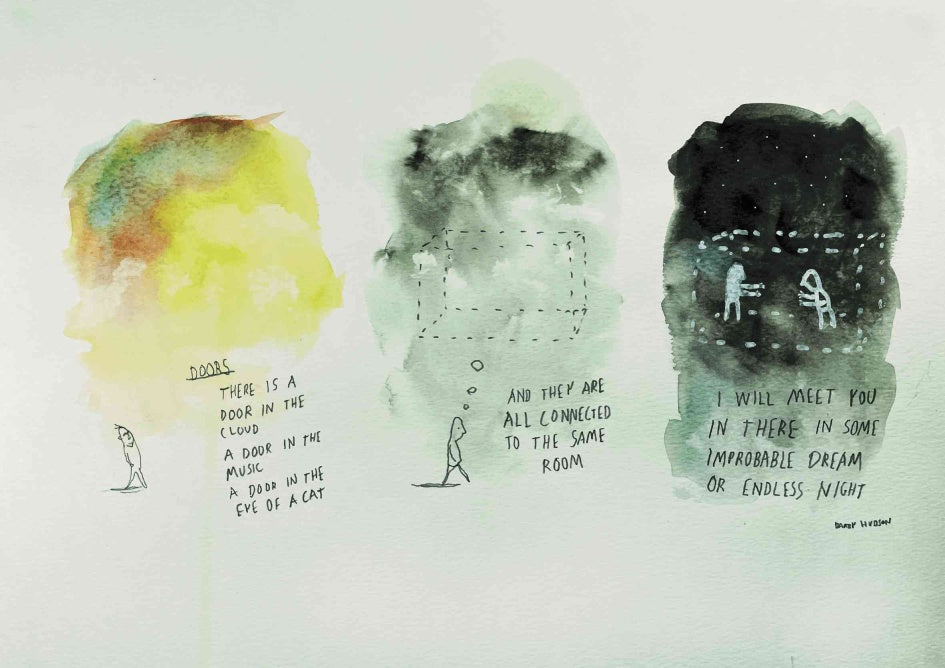 DOORS
THERE IS A
DOOR IN THE
CLOUD
A DOOR IN THE
MUSIC
A DOOR IN THE
EYE OF A CAT
AND THEY ARE
ALL CONNECTED
TO THE SAME
ROOM
I WILL MEET YOU
IN THERE IN SOME
IMPROBABLE DREAM
OR ENDLESS NIGHT
HUDSON